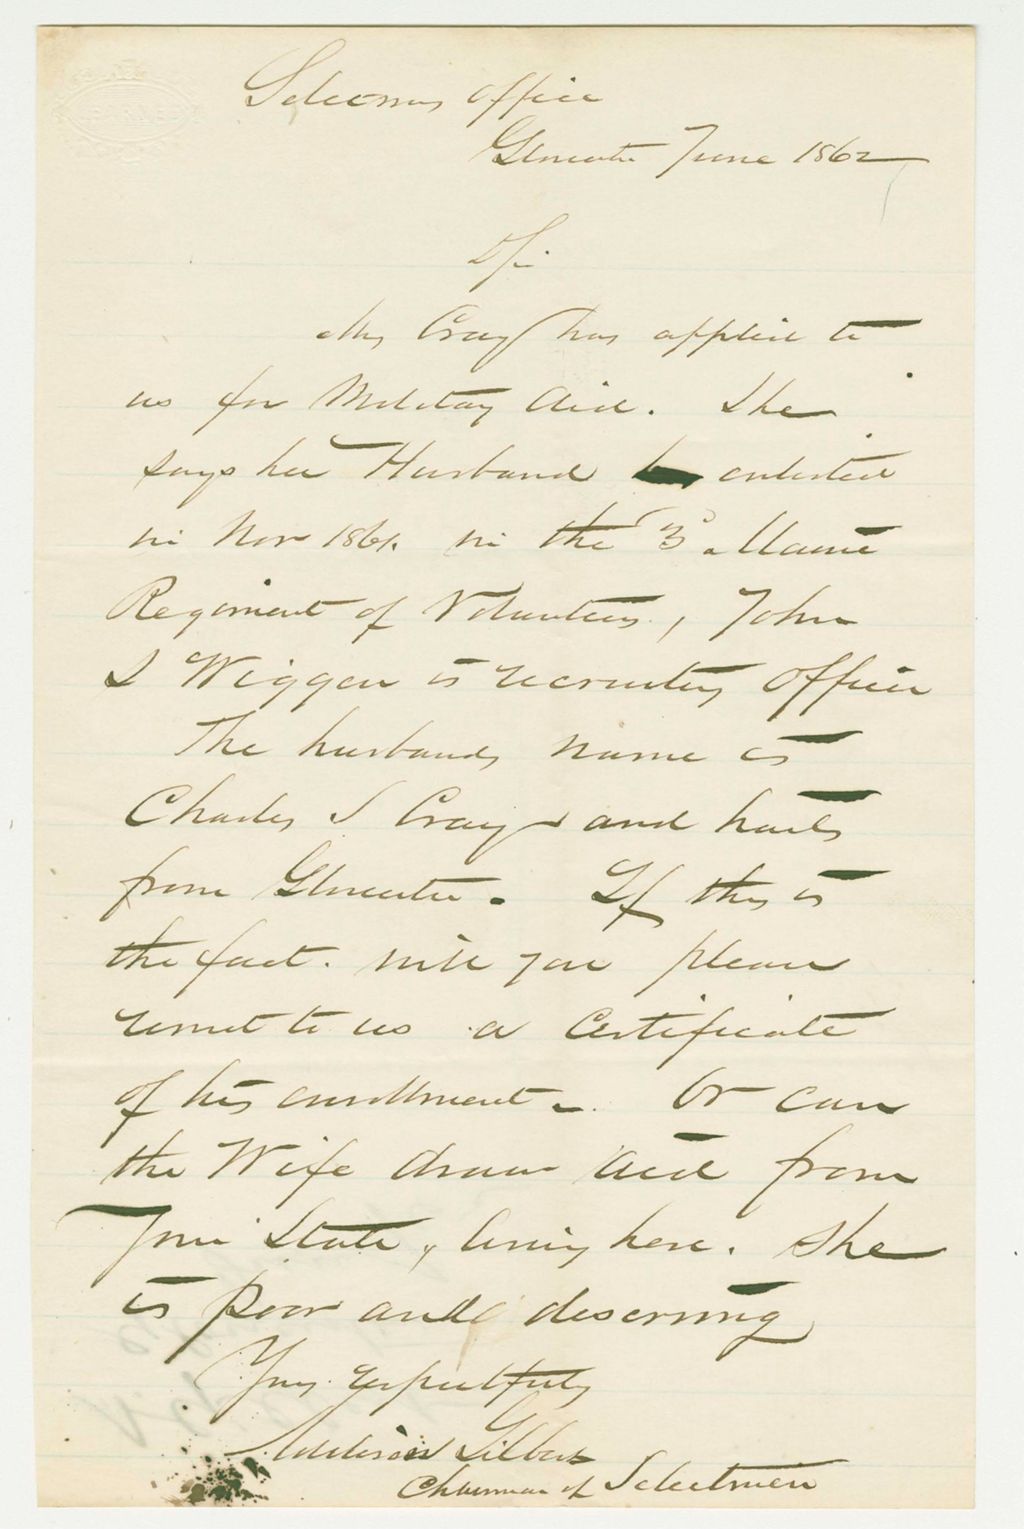 Selectmens office
Gloucester June 1862
D Sir
Mrs Cray has applied to
us for Military Aid. She
says her Husband enlisted
in Nov 1861. in the 3d Maine
Regiment of Volunteers, John
S Wiggin is recruiting officer
The husbands name is
Charles S Cray and hails
from Gloucester. If this is
the fact. will you please
remit to us a Certificate
of his enrollment. Or can
the Wife draw aid from
Your State, living here. She
is poor and deserving
Yours respectfully
Addison Gilbert
Chairman of Selectmen